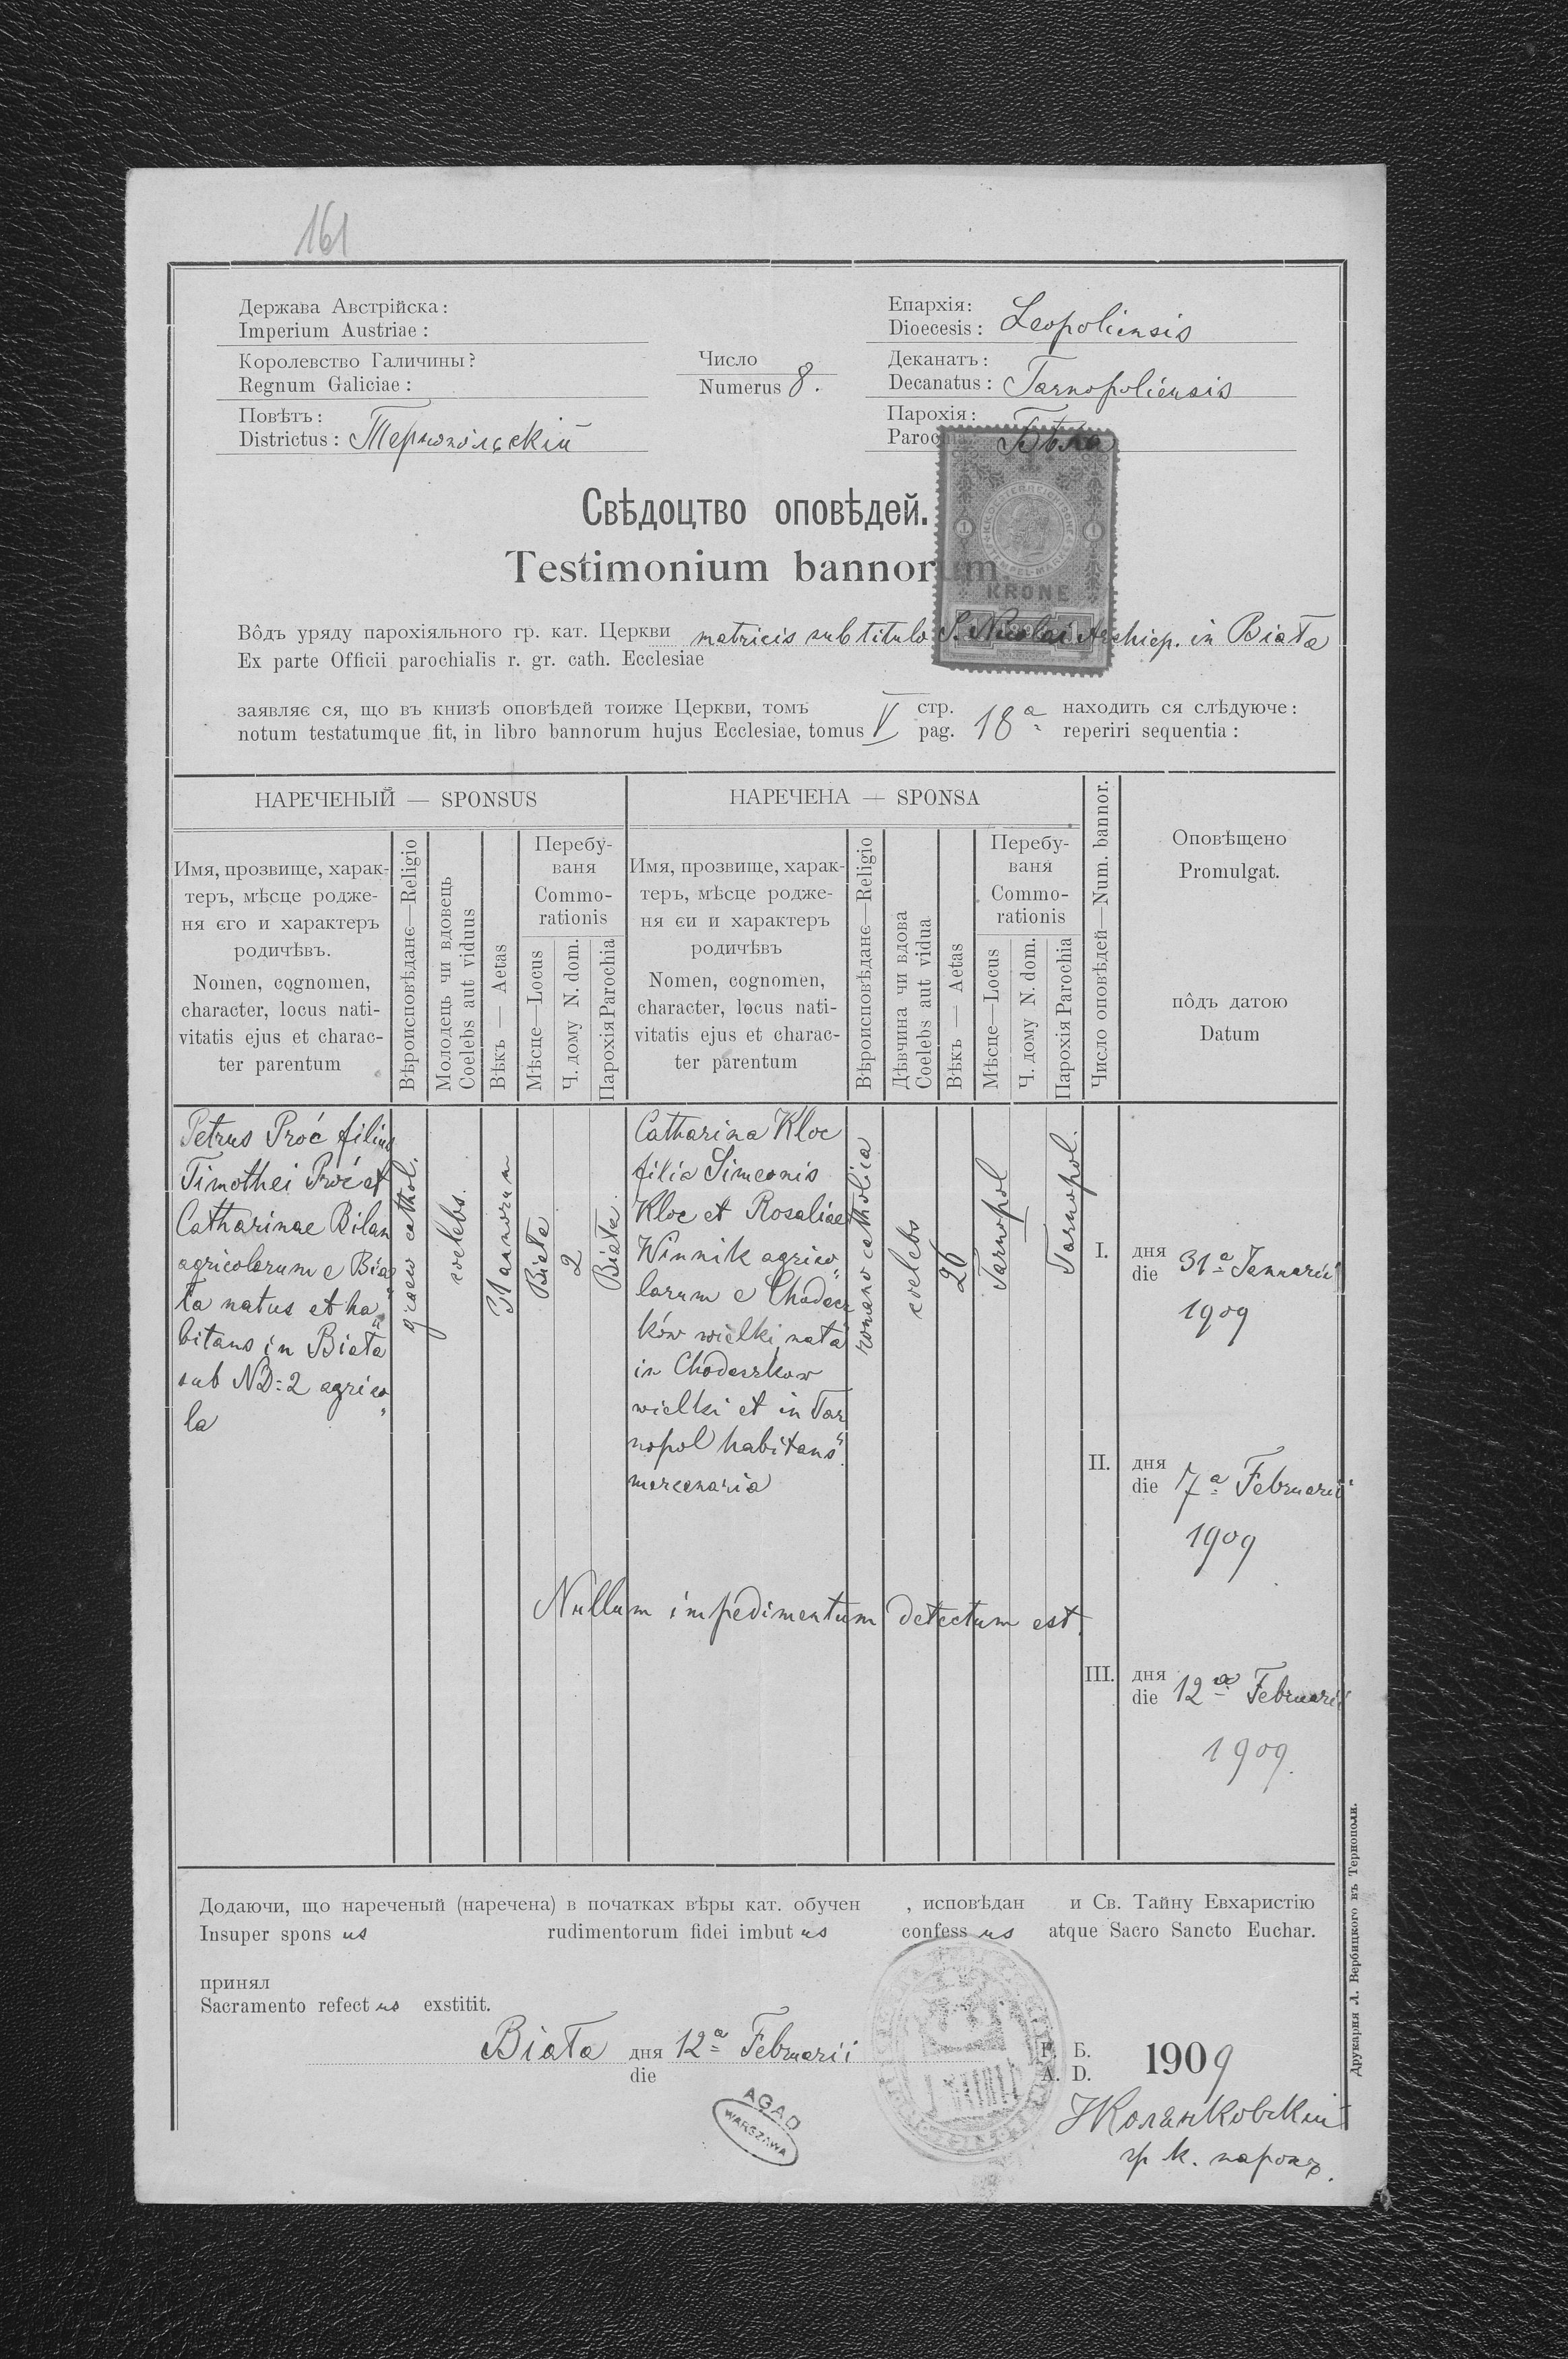 161
Держава Австрійска:
Imperium Austriae:
Королевство Галичины?
Regnum Galiciae:
Повѣтъ:
Districtus: Тернопôльскій
Число
Numerus 8.
Епархія:
Dioecesis: Leopoliensis
Деканатъ:
Decanatus: Tarnopoliensis
Парохія:
Бѣла
Свѣдоцтво оповѣдей.
Testimonium bannorum
KRONE
Вôдъ уряду парохіяльного гр. кат. Церкви matricis sub titulo S. Nicolai Archiep. in Biała
Ex parte Officii parochialis r. gr. cath. Ecclesiae
заявляє ся, що въ книзѣ оповѣдей тоиже Церкви, томъ стр. находить ся слѣдуюче:
notum testatumque fit, in libro bannorum hujus Ecclesiae, tomus V pag. 18a reperiri sequentia:
НАРЕЧЕНЫЙ — SPONSUS
НАРЕЧЕНА — SPONSA
Имя, прозвище, харак-
теръ, мѣсце родже-
ня єго и характеръ
родичѣвъ.
Nomen, cognomen,
character, locus nati-
vitatis ejus et charac-
ter parentum
Вѣроисповѣданє—Religio
Молодець чи вдовець
Coelebs aut viduus
Вѣкъ — Aetas
Перебу-
ваня
Commo-
rationis
Мѣсце—Locus
Ч. дому N. dom.
Парохія Parochia
Имя, прозвище, харак-
теръ, мѣсце родже-
ня єи и характеръ
родичѣвъ
Nomen, cognomen,
character, locus nati-
vitatis ejus et charac-
ter parentum
Вѣроисповѣданє—Religio
Дѣвчина чи вдова
Coelebs aut vidua
Вѣкъ — Aetas
Перебу-
ваня
Commo-
rationis
Мѣсце—Locus
Ч. дому N. dom.
Парохія Parochia
Число оповѣдей—Num. bannor.
Оповѣщено
Promulgat.
пôдъ датою
Datum
Petrus Proć filius
Timothei Proć et
Catharinae Bilan
agricolarum e Bia
ła natus et ha„
bitans in Biała
sub ND: 2 agrico„
la
graeco cathol.
coelebs.
31 annorum
Biała
2
Biała.
Catharina Kloc
filia Simeonis
Kloc et Rosaliae
Winnik agrico„
larum e Chodacz
ków wielki, nata
in Chodaczkow
wielki et in Tar
nopol habitans
mercenaria
romano catholica
coelebs
26
Tarnopol
Tarnopol.
I. дня
die 31a Januarii
1909
II. дня
die 7a Februarii
1909
Nullum impedimentum detectum est.
III. дня
die 12a Februarii
1909.
Додаючи, що нареченый (наречена) в початках вѣры кат. обучен , исповѣдан и Св. Тайну Евхаристію
Insuper spons us rudimentorum fidei imbut us confess us atque Sacro Sancto Euchar.
принял
Sacramento refect us exstitit.
Biała дня 12a Februarii Р. Б.
die A. D. 1909
гр. к. парохъ.
AGAD
WARSZAWA
Друкарня Л. Вербицкого въ Тернополи.